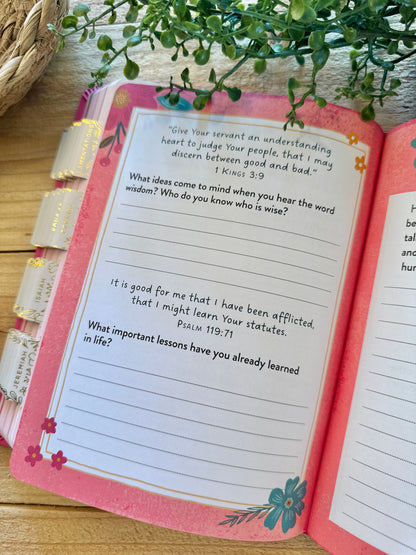 "Give Your servant an understanding
heart to judge Your people, that I may
discern between good and bad."
1 Kings 3:9
What ideas come to mind when you hear the word
wisdom? Who do you know who is wise?
It is good for me that I have been afflicted,
that I might learn Your statutes.
Psalm 119:71
What important lessons have you already learned
in life?
ISAIAH
JEREMIAH
H
be
tal
and
and